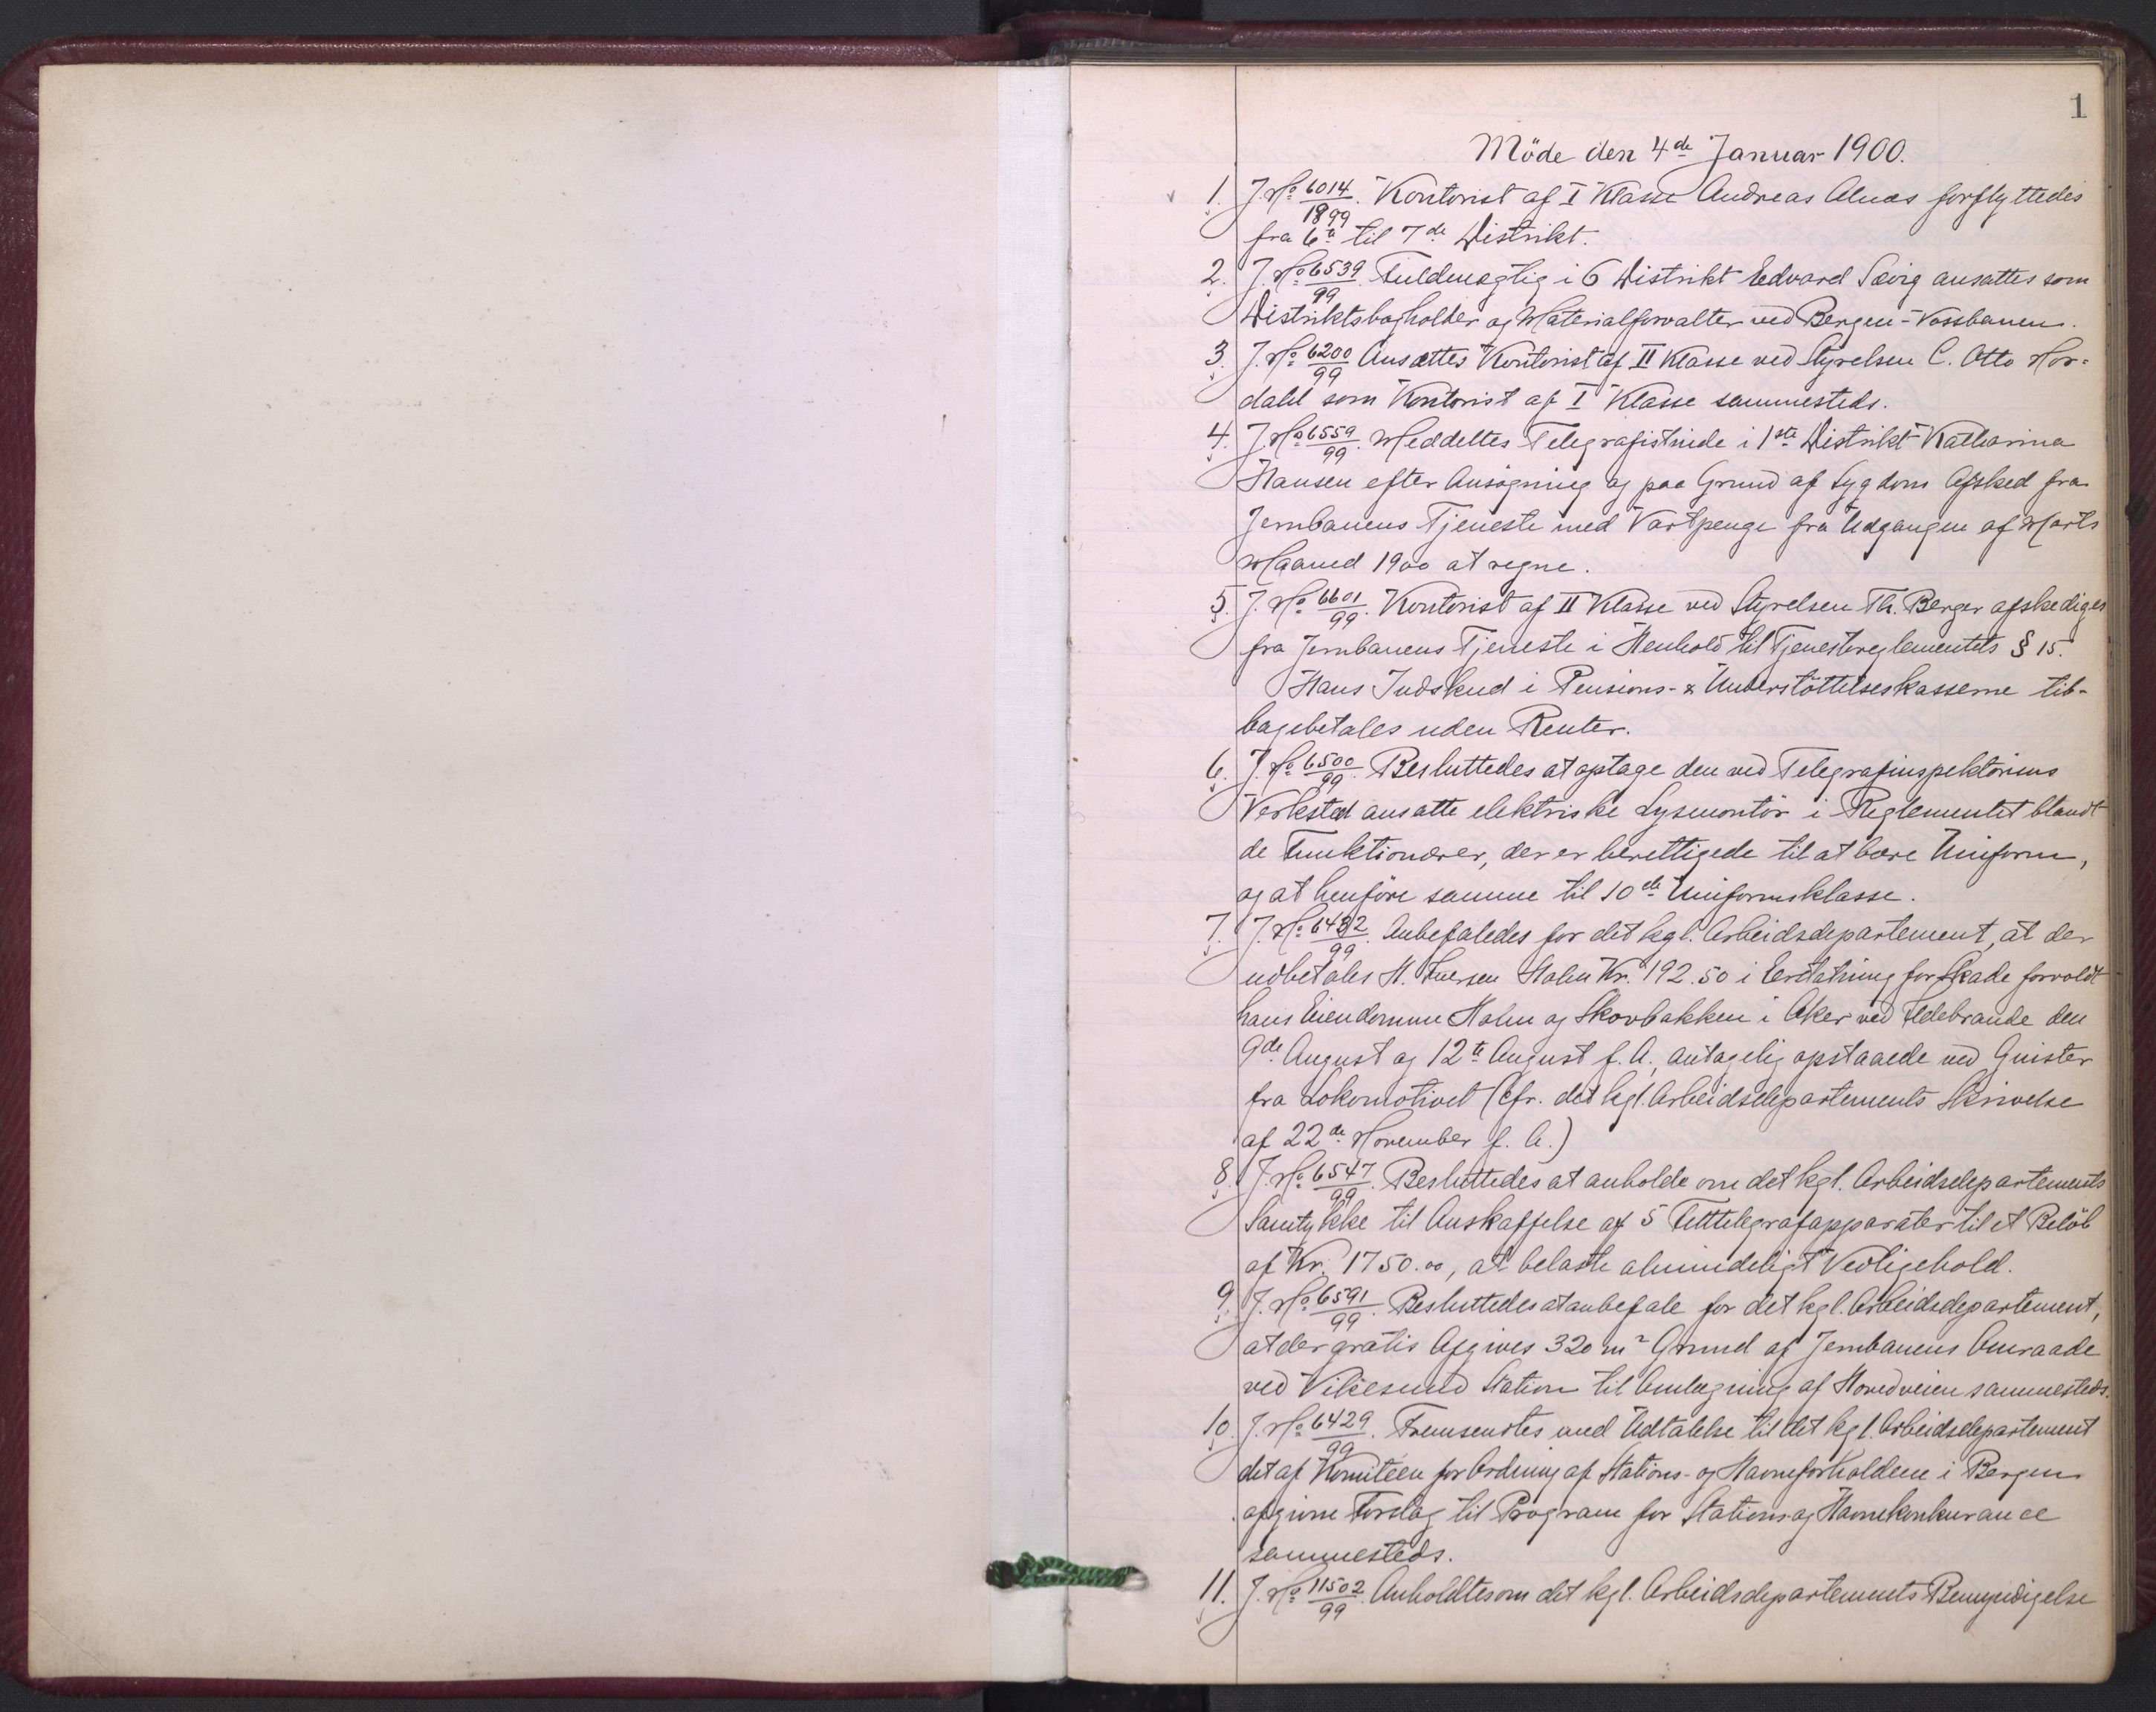 1
Möde den 4de Januar 1900.
1. J. No 6014/1899. Kontorist af I Klasse Andreas Alnæs forflyttedes
fra 6te til 7de Distrikt.
2. J. No 6539/99. Fuldmægtig i 6 Distrikt Edvard Sævig ansattes som
Distriktsbogholder og Materialforvalter ved Bergen-Vossbanen.
3. J. No 6200/99 Ansattes Kontorist af II Klasse ved Styrelsen C. Otto Nor-
dahl som Kontorist af I Klasse sammesteds.
4. J. No 6559/99. Meddeltes Telegrafistinde i 1ste Distrikt Katharina
Hansen efter Ansögning og paa Grund af Sygdom Afsked fra
Jernbanens Tjeneste med Vartpenge fra Udgangen af Marts
Maaned 1900 at regne.
5. J. No 6601/99. Kontorist af II Klasse ved Styrelsen Th. Berger afskediges
fra Jernbanens Tjeneste i Henhold til Tjenestereglementets § 15.
Hans Indskud i Pensions- & Understöttelseskasserne til-
bagebetales uden Renter.
6. J. No 6500/99. Besluttedes at optage den ved Telegrafinspektörens
Verksted ansatte elektriske Lysmontör i Reglementet blandt
de Funktionærer, der er berettigede til at bære Uniform,
og at henføre samme til 10de Uniformsklasse.
7. J. No 6432/99. Anbefaledes for det kgl. Arbeidsdepartement, at der
udbetales H. Iversen Holm Kr. 192.50 i Erstatning for Skade forvoldt
hans Eiendomme Holm og Skovbakken i Aker ved Ildebrande den
9de August og 12te August f. A., antagelig opstaaede ved Gnister
fra Lokomotivet (Cfr. det kgl. Arbeidsdepartements Skrivelse
af 22de November f. A.)
8. J. No 6547/99. Besluttedes at anholde om det kgl. Arbeidsdepartements
Samtykke til Anskaffelse af 5 Felttelegrafapparater til et Belöb
af Kr. 1750.00, at belaste almindeligt Vedligehold.
9. J. No 6591/99. Besluttedes at anbefale for det kgl. Arbeidsdepartement,
at der gratis Afgives 320 m² Grund af Jernbanens Omraade
ved Vikesund Station til Omlægning af Hovedveien sammesteds.
10. J. No 6429/99. Fremsendtes med Udtalelse til det kgl. Arbeidsdepartement
det af Komiteen for Ordning af Stations- og Havneforholdene i Bergen
afgivne Forslag til Program for Stations- og Havnekonkurance
sammesteds.
11. J. No 11502/99. Anholdtes om det kgl. Arbeidsdepartements Bemyndigelse